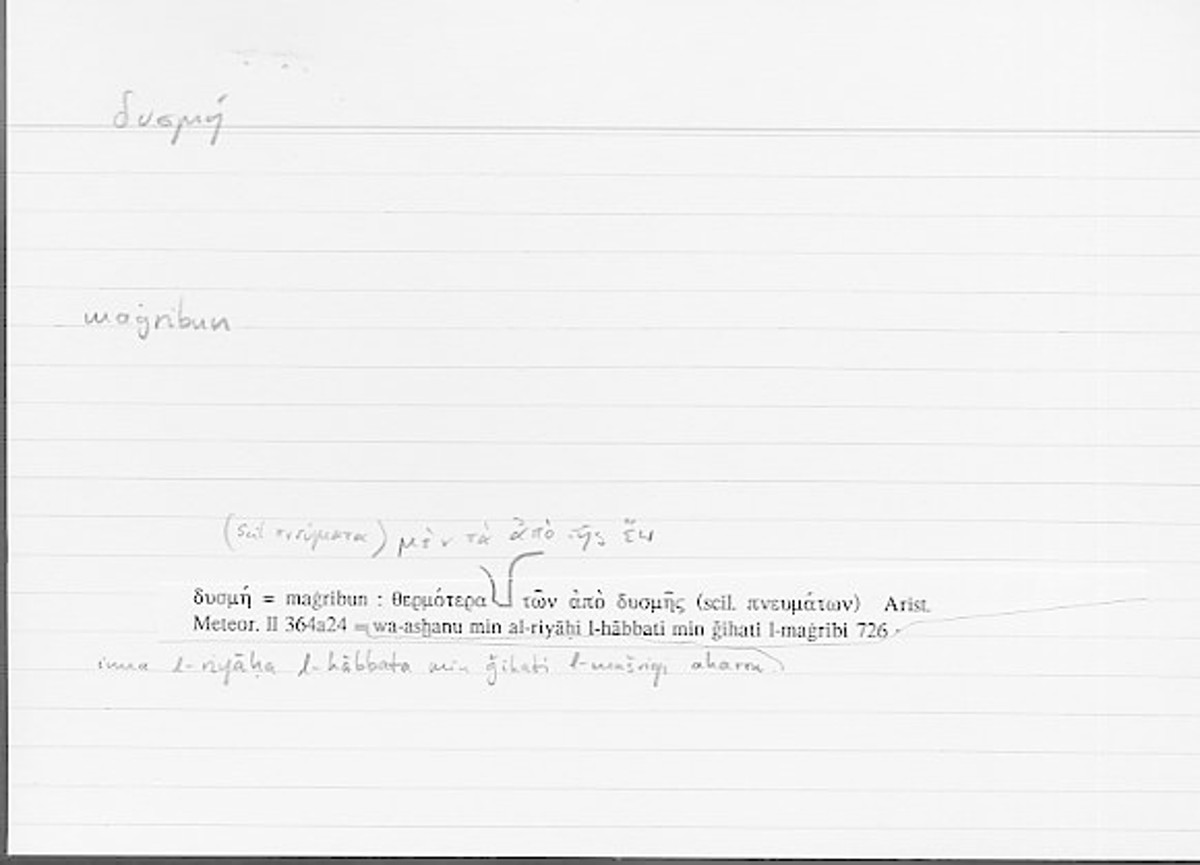 δυσμή
maġribun
(scil πνεύματα) μὲν τὰ ἀπὸ τῆς ἕω
δυσμή = maġribun : θερμότερα τῶν ἀπὸ δυσμῆς (scil. πνευμάτων) Arist.
Meteor. II 364a24 = wa-asḫanu min al-riyāḥi l-hābbati min ǧihati l-maġribi 726
inna l-riyāḥa l-hābbata min ǧihati l-mašriqi